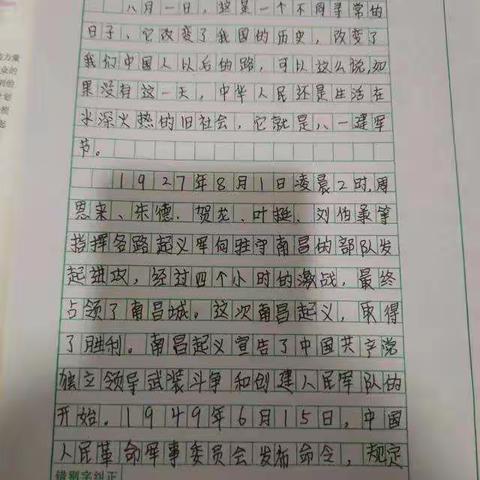 八月一日，这是一个不同寻常的
日子，它改变了我国的历史，改变了
我们中国人以后的路，可以这么说，如
果没有这一天，中华人民还是生活在
水深火热的旧社会，它就是八一建军
节。
1927年8月1日凌晨2时，周
恩来、朱德、贺龙、叶挺、刘伯承等
指挥各路起义军向驻守南昌的部队发
起进攻，经过四个小时的激战，最终
占领了南昌城。这次南昌起义，取得
了胜利。南昌起义宣告了中国共产党
独立领导武装斗争和创建人民军队的
开始。1949年6月15日，中国
人民革命军事委员会发布命令，规定
错别字纠正